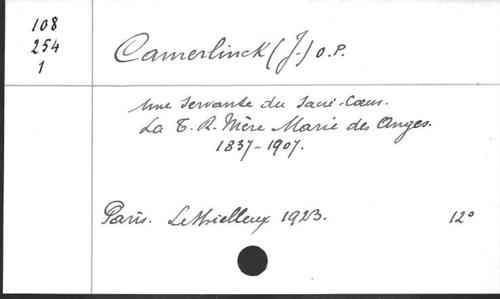 108
254
1
Camerlinck (J.) O.P.
Une Servante du Sacré-Cœur.
La T. R. Mère Marie des Anges.
1837-1907.
Paris. Lethielleux 1923. 12°